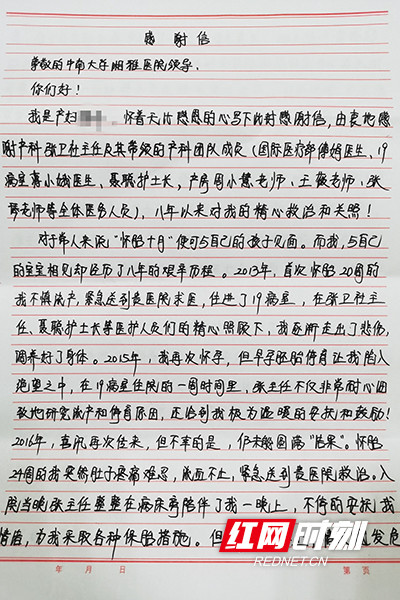 感谢信
尊敬的中南大学湘雅医院领导、
你们好！
我是产妇 ，怀着无比感恩的心写下此封感谢信，由衷地感
谢产科张卫社主任及其带领的产科团队成员（国际医疗部 医生、19
病室 医生、聂 护士长，产房周小 老师、王 老师、张
老师等全体医务人员），八年以来对我的精心救治和关照！
对于常人来说"怀胎十月"便可与自己的孩子见面。而我，与自己
的宝宝相见却经历了八年的艰辛历程。2013年，首次怀胎20周的
我不慎流产，紧急送到贵医院求医，住进了19病室，在张卫社主
任、聂 护士长等医护人员们的精心照顾下，我逐渐走出了悲伤，
调养好了身体。2015年，我再次怀孕，但早孕胚胎停育让我陷入
绝望之中，在19病室住院的一周时间里，张主任不仅非常耐心细
致地研究流产和停育原因，还给到我极为温暖的安抚和鼓励！
2016年，喜讯再次传来，但不幸的是，仍未能圆满"结果"。怀胎
24周的我突然肚子疼痛难忍，流血不止，紧急送到贵医院救治。入
院当晚张主任整整在病床旁陪伴了我一晚上，不停的安抚我
情绪，为我采取各种保胎措施。但 发危
红网时刻
REDNET.CN
年 月 日 第 页